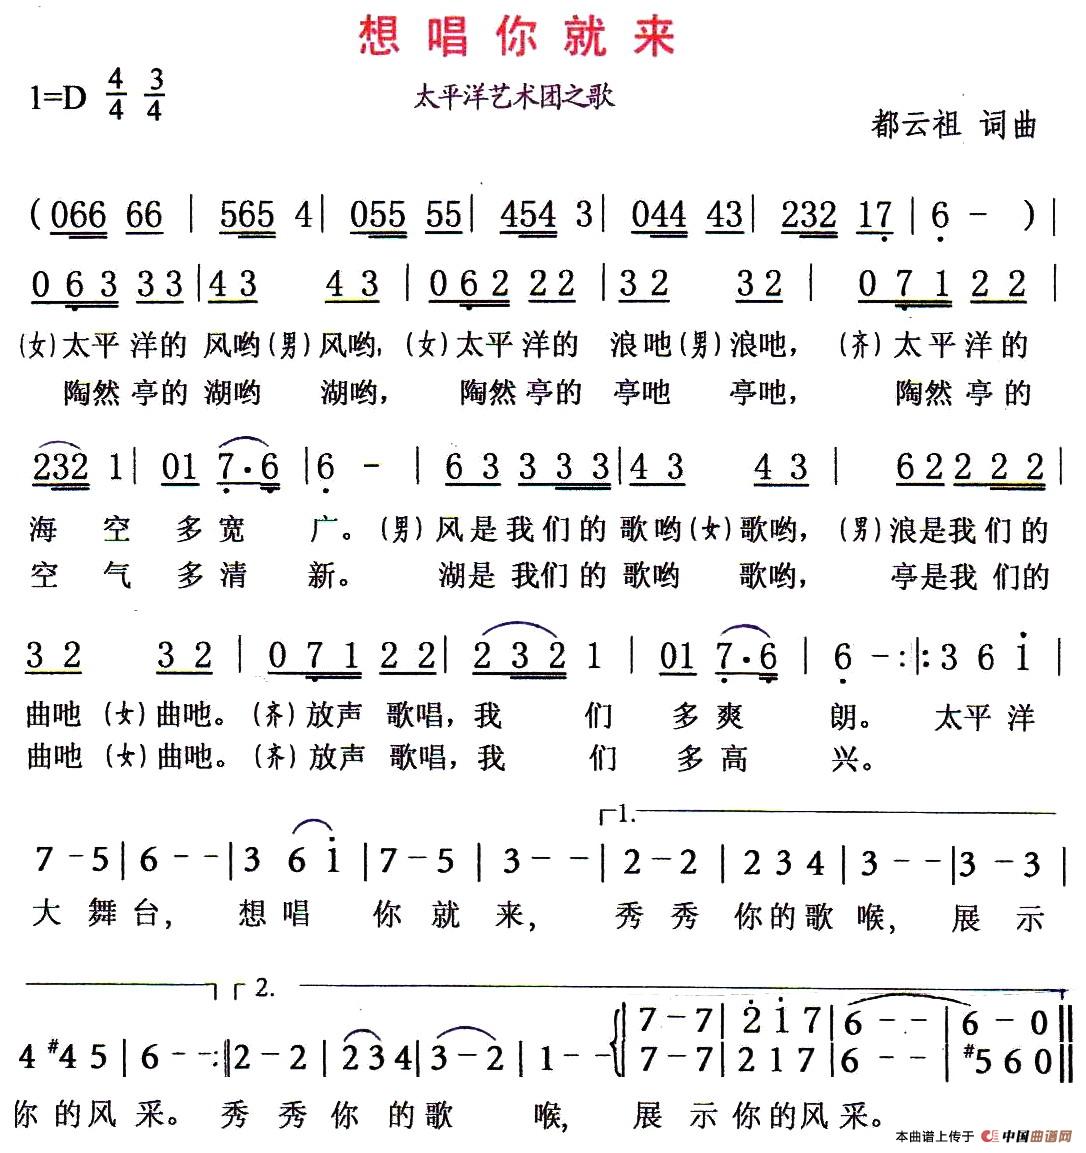 想唱你就来
1=D 4/4 3/4
太平洋艺术团之歌
都云祖 词曲
( 066 66 | 565 4 | 055 55 | 454 3 | 044 43 | 232 17 | 6 - ) |
0 6 3 3 3 | 4 3 4 3 | 0 6 2 2 2 | 3 2 3 2 | 0 7 1 2 2 |
(女)太平洋的 风哟(男)风哟, (女)太平洋的 浪吔(男)浪吔, (齐)太平洋的
陶然亭的 湖哟 湖哟, 陶然亭的 亭吔 亭吔, 陶然亭的
232 1 | 01 7·6 | 6 - | 6 3 3 3 3 | 4 3 4 3 | 6 2 2 2 2 |
海 空 多宽 广。(男)风是我们的歌哟(女)歌哟, (男)浪是我们的
空 气 多清 新。 湖是我们的歌哟 歌哟, 亭是我们的
3 2 3 2 | 0 7 1 2 2 | 2 3 2 1 | 01 7·6 | 6 - :||: 3 6 i |
曲吔 (女)曲吔。(齐)放声 歌唱,我 们 多爽 朗。 太平洋
曲吔 (女)曲吔。(齐)放声 歌唱,我 们 多高 兴。
1.
7 - 5 | 6 - - | 3 6 i | 7 - 5 | 3 - - | 2 - 2 | 2 3 4 | 3 - - | 3 - 3 |
大 舞台, 想唱 你就来, 秀秀你的歌喉, 展示
2.
7 - 7 | 2 i 7 | 6 - - | 6 - 0 ||
4 #4 5 | 6 - - :|| 2 - 2 | 2 3 4 | 3 - 2 | 1 - - | 7 - 7 | 2 1 7 | 6 - - | #5 6 0 ||
你的风采。秀秀你的歌 喉, 展示你的风采。
本曲谱上传于 中国曲谱网